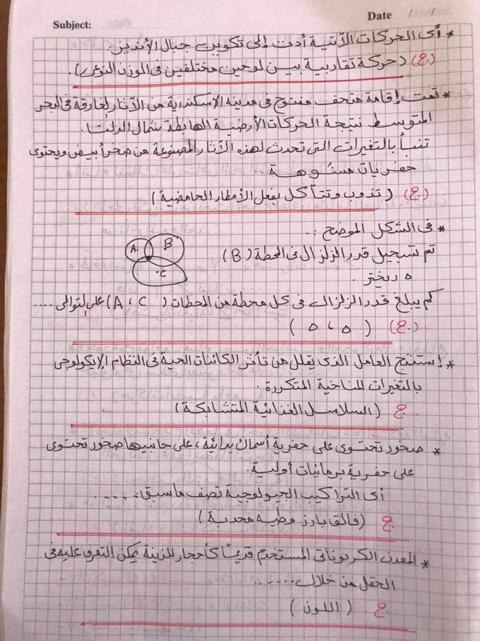 Subject:
Date / /
* أى الحركات الآتية أدت إلى تكوين جبال الأنديز:
(ج.) (حركة تقاربية بين لوحين مختلفين فى الوزن النوعى).
* تمت إقامة متحف مفتوح فى مدينة الإسكندرية من الآثار الغارقة فى البحر
المتوسط نتيجة الحركات الأرضية الهابطة شمال الدلتا.
تنبأ بالتغيرات التى تحدث لهذه الآثار المصنوعة من صخر أبيض ويحتوى
حفريات مشوهة...
(ج.) (تذوب وتتآكل بفعل الأمطار الحامضية)
* فى الشكل الموضح:.
تم تسجيل قدر الزلزال فى المحطة (B)
٥ ريختر.
A. B .C
كم يبلغ قدر الزلزال فى كل محطة من المحطات (A، C) على التوالى....
(ج.) (٥، ٥)
* إستنتج العامل الذى يقلل من تأثر الكائنات الحية فى النظام الإيكولوجى
بالتغيرات المناخية المتكررة.
ج (السلاسل الغذائية المتشابكة)
* صخور تحتوى على حفرية أسماك بدائية، على جانبيها صخور تحتوى
على حفرية برمائيات أولية.
أى التراكيب الجيولوجية تصف ماسبق......
ج (فالق بارز وطيه محدبة)
* المعدن الكربوناتى المستخدم قديمًا كأحجار للزينة يمكن التعرف عليه فى
الحقل من خلال......
ج (اللون)